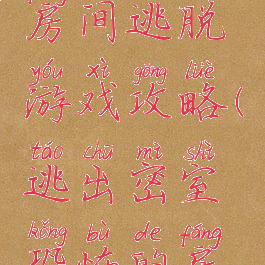 房间逃脱
yóu xì gōng lüè
游戏攻略(
táo chū mì shì
逃出密室
kǒng bù de fáng
恐怖的房